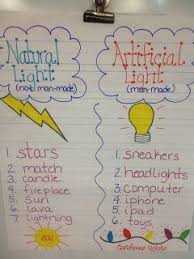 Natural
Light
(not man-made)
1 stars
2. match
3. candle
4. fireplace
5. sun
6. lava
7. lightning
Artificial
Light
(man-made)
1. sneakers
2. headlights
3. computer
4. iphone
5. ipad
6. toys